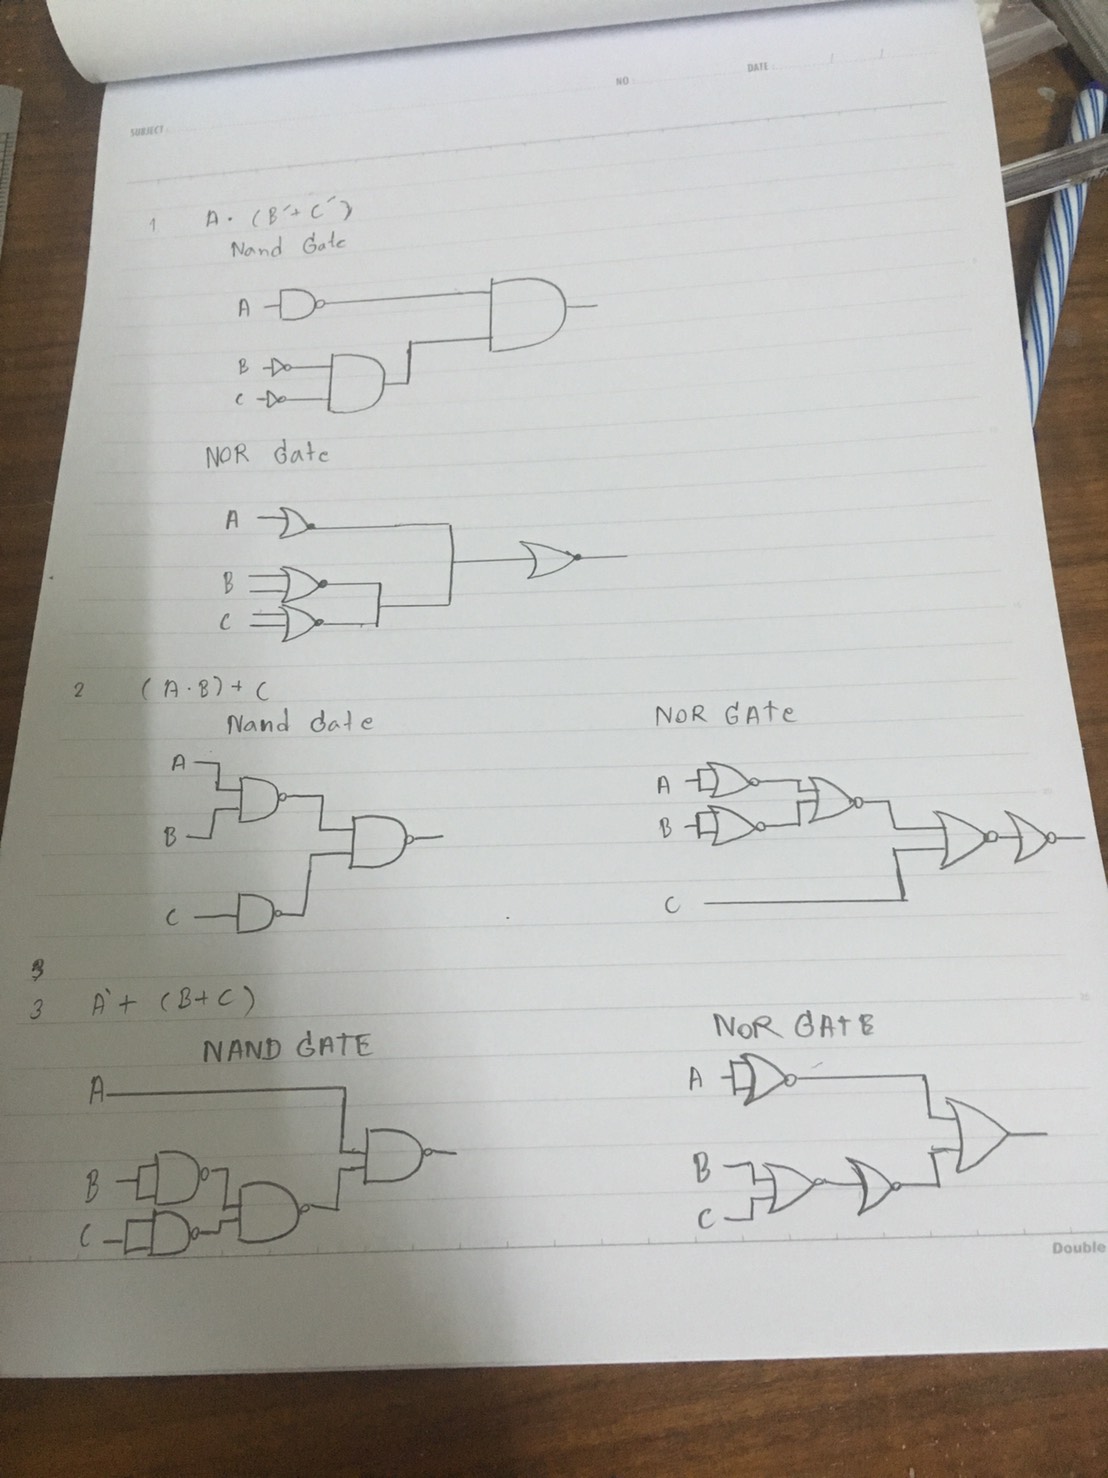 NO
DATE
SUBJECT
1 A · (B' + C')
Nand Gate
A
B
C
NOR Gate
A
B
C
2 (A · B) + C
Nand Gate
A
B
C
NOR GAte
A
B
C
3
3 A' + (B + C)
NAND GATE
A
B
C
NOR GAtE
A
B
C
Double